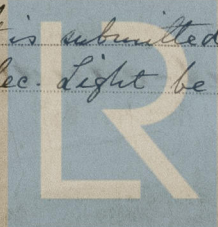 is submitted
ec. Light be
LR